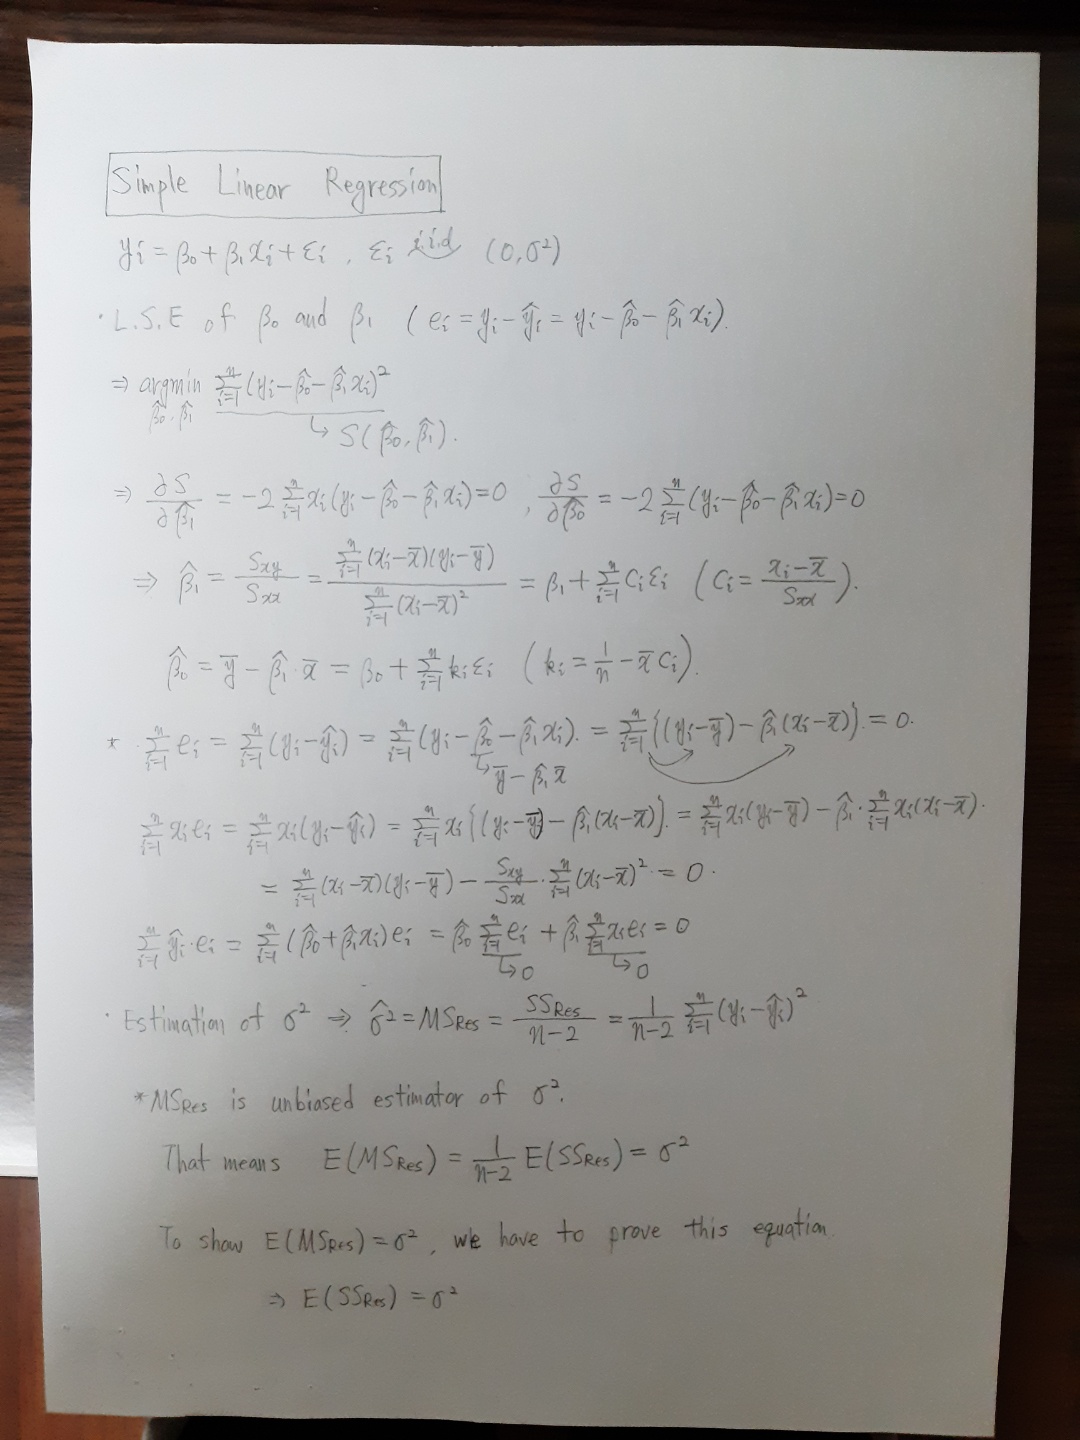 Simple Linear Regression
yᵢ = β₀ + β₁xᵢ + εᵢ , εᵢ i.i.d (0, σ²)
· L.S.E of β₀ and β₁ (eᵢ = yᵢ - ŷᵢ = yᵢ - β̂₀ - β̂₁xᵢ).
⇒ argmin_{β̂₀, β̂₁} Σ_{i=1}^{n} (yᵢ - β̂₀ - β̂₁xᵢ)²
↳ S(β̂₀, β̂₁).
⇒ ∂S/∂β̂₁ = -2 Σ_{i=1}^{n} xᵢ(yᵢ - β̂₀ - β̂₁xᵢ) = 0 , ∂S/∂β̂₀ = -2 Σ_{i=1}^{n} (yᵢ - β̂₀ - β̂₁xᵢ) = 0
⇒ β̂₁ = Sxy/Sxx = Σ_{i=1}^{n} (xᵢ - x̄)(yᵢ - ȳ) / Σ_{i=1}^{n} (xᵢ - x̄)² = β₁ + Σ_{i=1}^{n} Cᵢεᵢ (Cᵢ = (xᵢ - x̄)/Sxx).
β̂₀ = ȳ - β̂₁·x̄ = β₀ + Σ_{i=1}^{n} kᵢεᵢ (kᵢ = 1/n - x̄Cᵢ).
* · Σ_{i=1}^{n} eᵢ = Σ_{i=1}^{n} (yᵢ - ŷᵢ) = Σ_{i=1}^{n} (yᵢ - β̂₀ - β̂₁xᵢ). = Σ_{i=1}^{n} {(yᵢ - ȳ) - β̂₁(xᵢ - x̄)}. = 0.
↳ ȳ - β̂₁x̄
Σ_{i=1}^{n} xᵢeᵢ = Σ_{i=1}^{n} xᵢ(yᵢ - ŷᵢ) = Σ_{i=1}^{n} xᵢ{(yᵢ - ȳ) - β̂₁(xᵢ - x̄)}. = Σ_{i=1}^{n} xᵢ(yᵢ - ȳ) - β̂₁·Σ_{i=1}^{n} xᵢ(xᵢ - x̄).
= Σ_{i=1}^{n} (xᵢ - x̄)(yᵢ - ȳ) - Sxy/Sxx · Σ_{i=1}^{n} (xᵢ - x̄)² = 0.
Σ_{i=1}^{n} ŷᵢ·eᵢ = Σ_{i=1}^{n} (β̂₀ + β̂₁xᵢ)eᵢ = β̂₀ Σ_{i=1}^{n} eᵢ + β̂₁ Σ_{i=1}^{n} xᵢeᵢ = 0
↳ 0 ↳ 0
· Estimation of σ² ⇒ σ̂² = MSRes = SSRes/(n-2) = 1/(n-2) Σ_{i=1}^{n} (yᵢ - ŷᵢ)²
* MSRes is unbiased estimator of σ².
That means E(MSRes) = 1/(n-2) E(SSRes) = σ²
To show E(MSRes) = σ², we have to prove this equation.
⇒ E(SSRes) = σ²